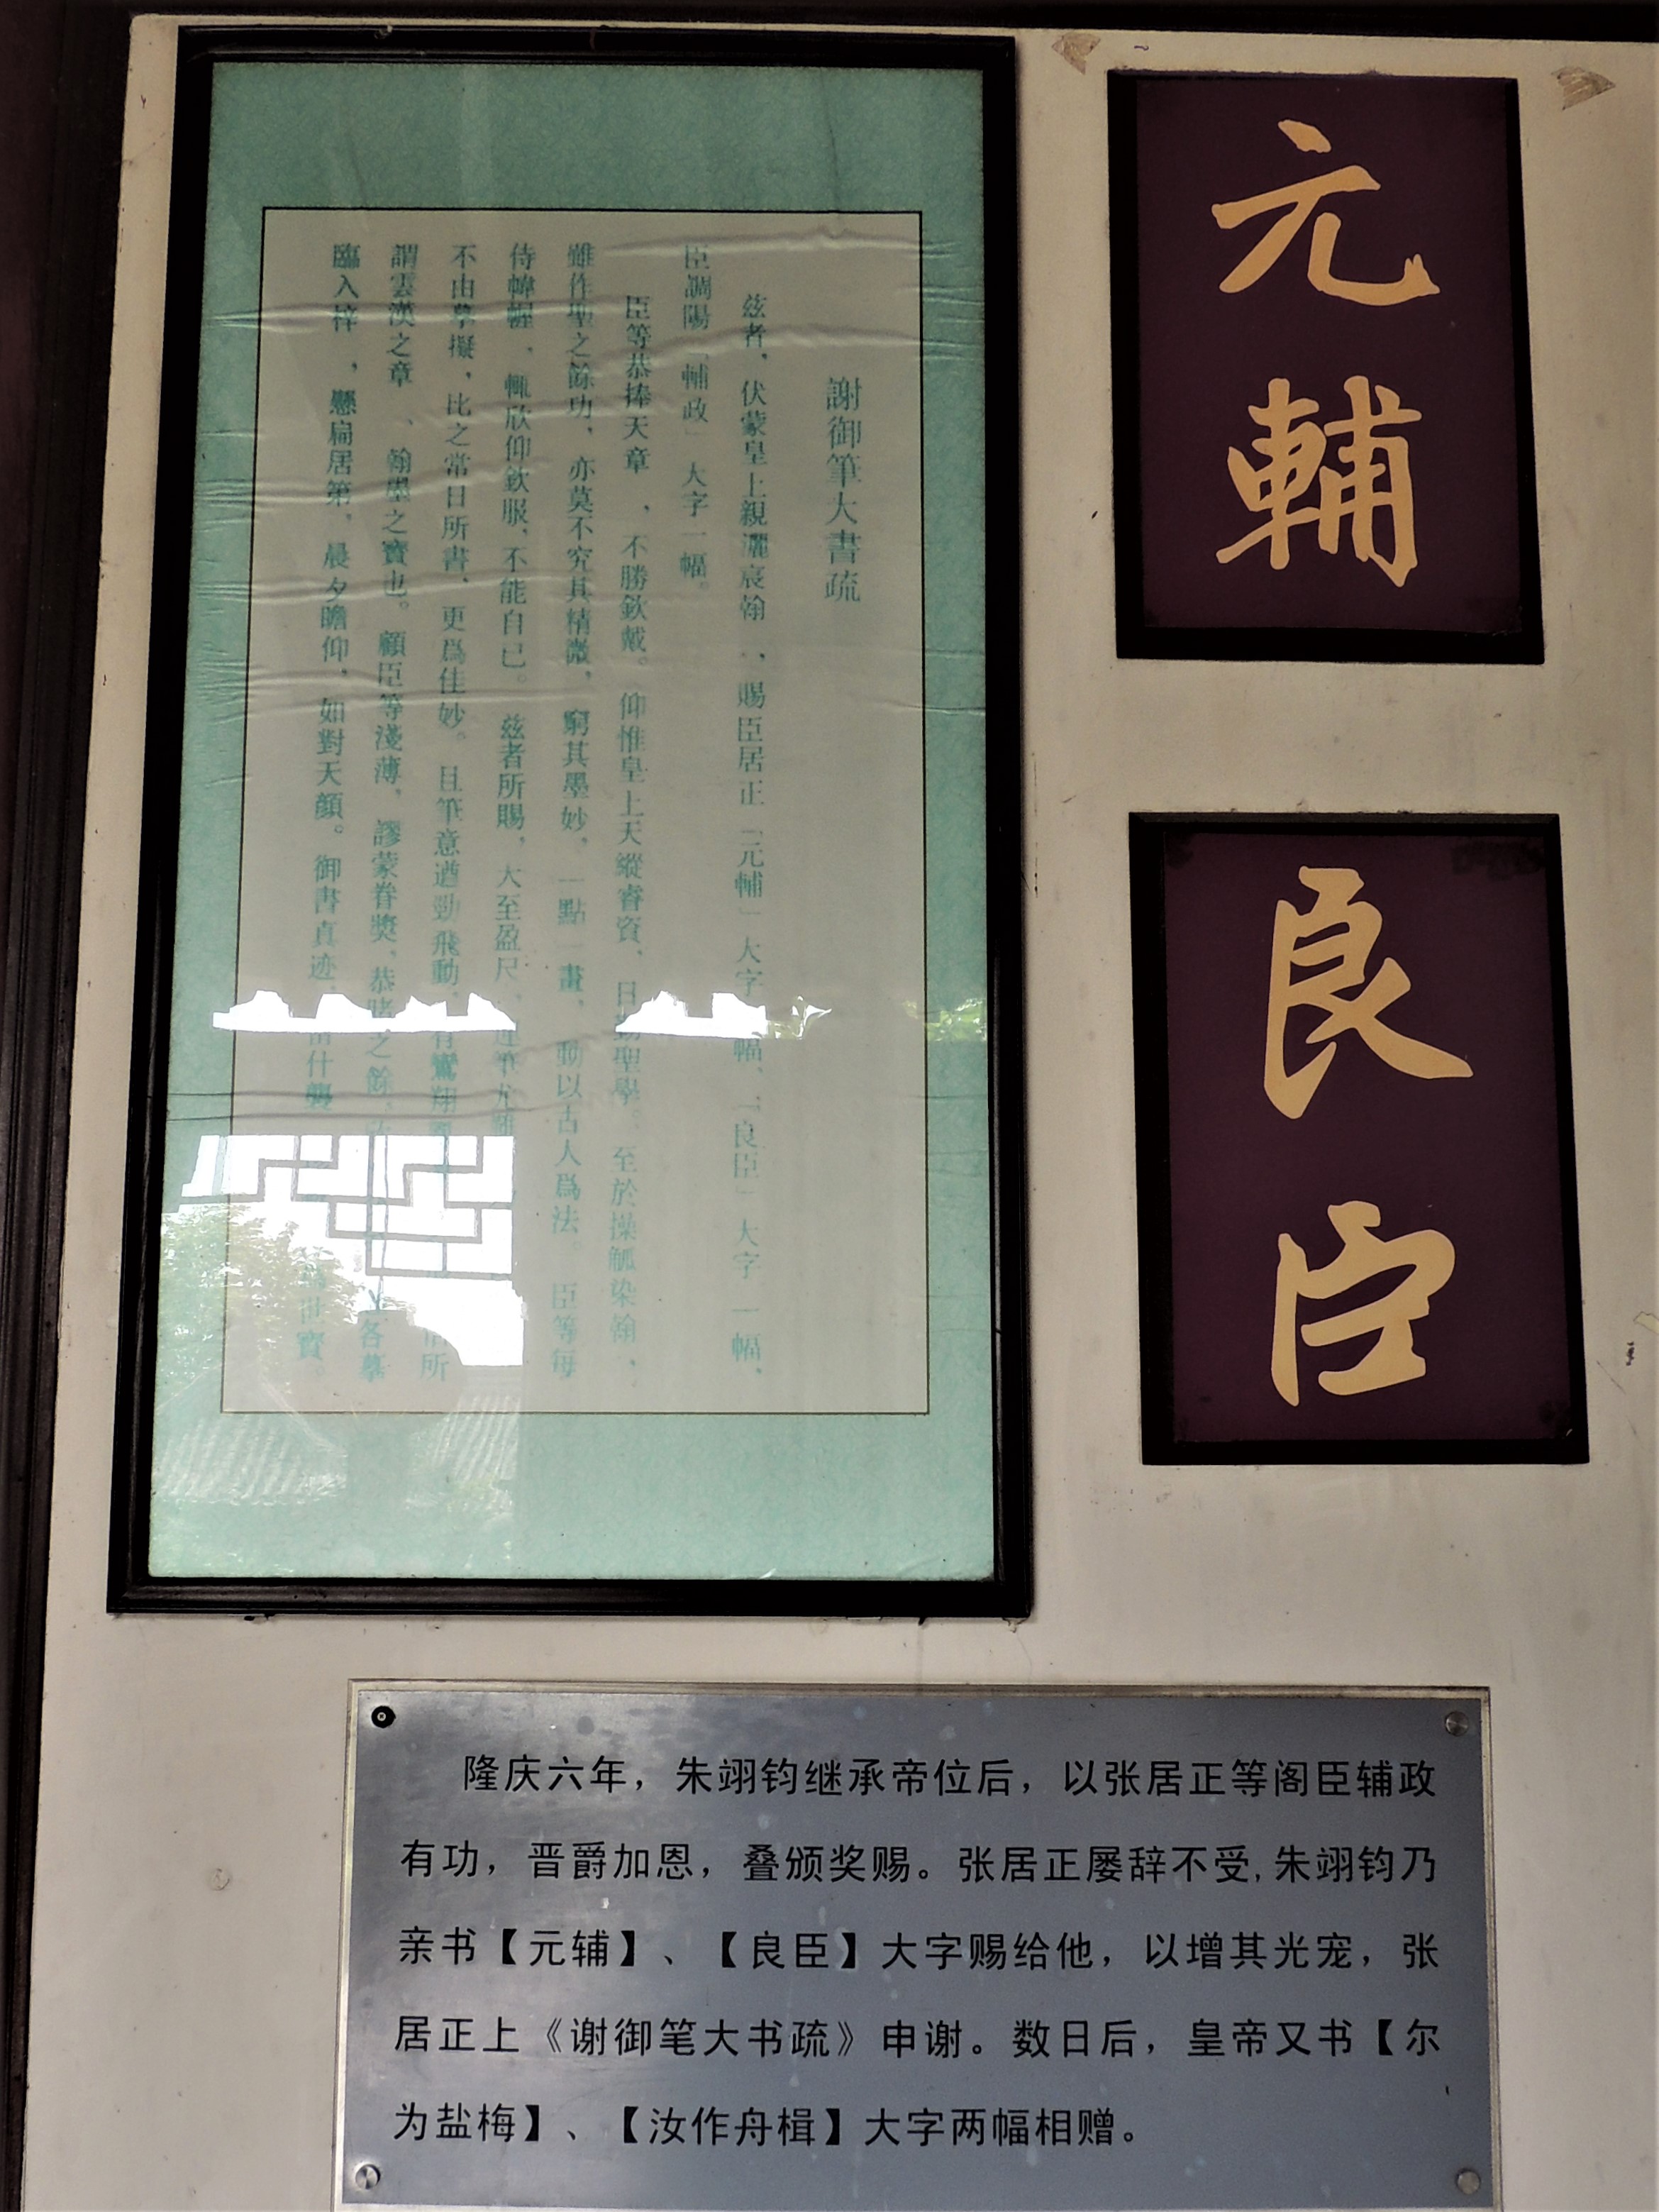 元輔
良臣
謝御筆大書疏
兹者，伏蒙皇上親灑宸翰，賜臣居正「元輔」大字 幅、「良臣」大字一幅、
臣調陽「輔政」大字一幅。
臣等恭捧天章，不勝欽戴。仰惟皇上天縱睿資，日勤聖學。至於操觚染翰，
雖作聖之餘功，亦莫不究其精微，窮其墨妙，一點一畫，動以古人爲法。臣等每
侍幃幄，輒欣仰欽服，不能自已。兹者所賜，大至盈尺，運筆尤難
不由摹擬，比之常日所書，更爲佳妙。且筆意遒勁飛動，有鸞翔 所
謂雲漢之章、翰墨之寶也。顧臣等淺薄，謬蒙眷獎，恭睹之餘， 各摹
臨入梓，懸扁居第，晨夕瞻仰，如對天顔。御書真迹， 什襲 世寶。
隆庆六年，朱翊钧继承帝位后，以张居正等阁臣辅政
有功，晋爵加恩，叠颁奖赐。张居正屡辞不受，朱翊钧乃
亲书【元辅】、【良臣】大字赐给他，以增其光宠，张
居正上《谢御笔大书疏》申谢。数日后，皇帝又书【尔
为盐梅】、【汝作舟楫】大字两幅相赠。